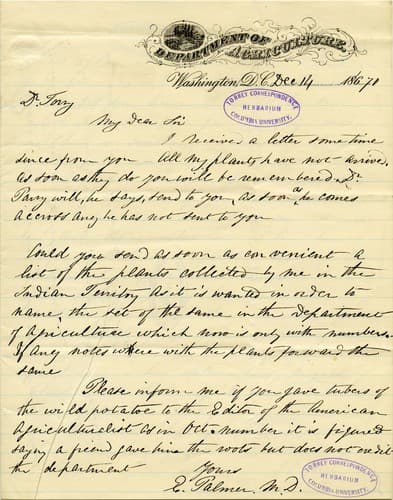 DEPARTMENT OF AGRICULTURE.
Washington, D.C. Dec 14 186 70
TORREY CORRESPONDENCE
HERBARIUM
COLUMBIA UNIVERSITY.
Dr. Torry
My Dear Sir
I received a letter some time
since from you All my plants have not arrive.
as soon as they do you will be remembered. Dr.
Parry will, he says, send to you, as soon as he comes
accross any he has not sent to you
Could you send as soon as convenient a
list of the plants collected by me in the
Indian Territory As it is wanted in order to
name, the set of the same in the department
of Agriculture which now is only with numbers.
If any notes where with the plants forward the
same
Please inform me if you gave tubers of
the wild potatoe to the Editor of the American
Agriculturalist as in Oct. number it is figured
saying a friend gave him the roots but does not credit
the department
Yours
E. Palmer, M.D.
TORREY CORRESPONDENCE
HERBARIUM
COLUMBIA UNIVERSITY.